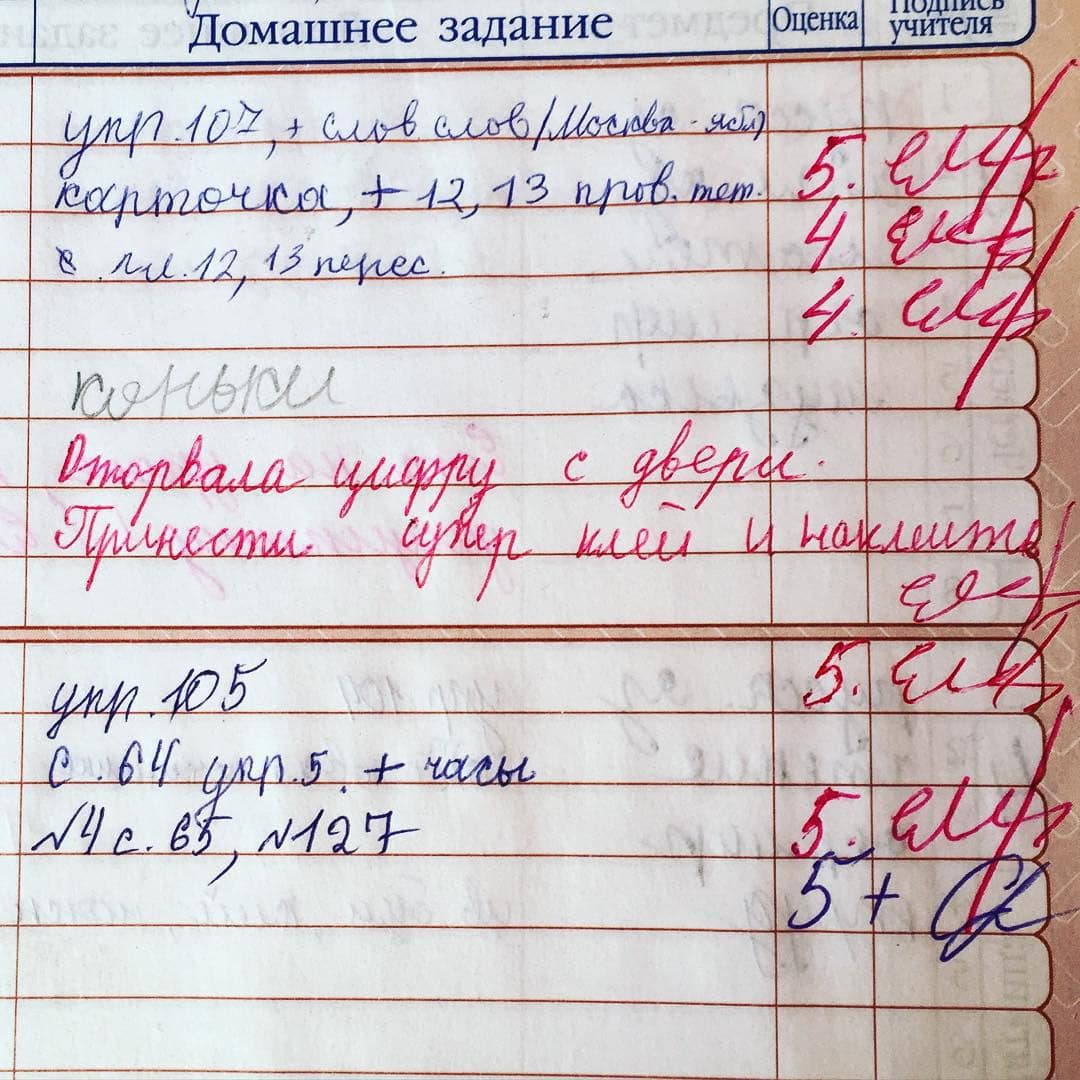 Домашнее задание
Оценка
Подпись учителя
упр. 107, + слов слов (Москва -
5.
карточка, + 12, 13 пров. тет.
4
12, 13 перес.
4.
коньки
Оторвала цифру с двери.
Принести супер клей и наклеить
упр. 105
5.
с. 64 упр. 5. + часы
№4 с. 65, №127
5.
5+